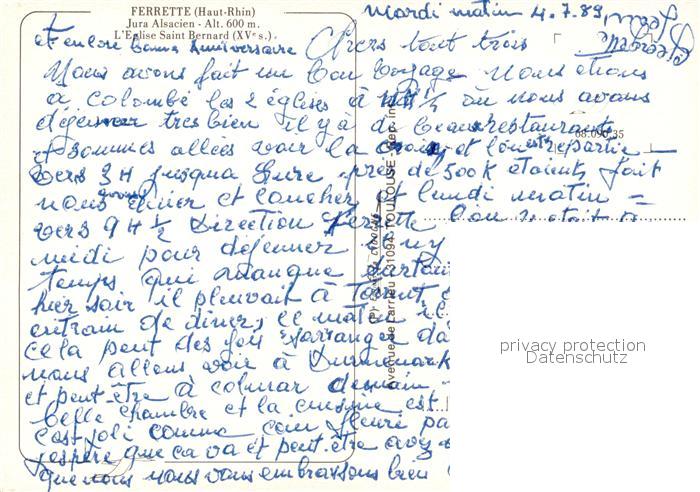 FERRETTE (Haut-Rhin)
Jura Alsacien - Alt. 600 m.
L'Eglise Saint Bernard (XVe s.)
Mardi matin 4.7.89
et encore bonne anniversaire Chers tout trois
Nous avons fait un bon voyage nous étions
à colombé les 2 églises à où nous avons
déjeuner tres bien il y à de beaux restaurants
et sommes allées voir la croix et l'on est repartie
vers 3H jusqua Lure près de 500K étaient fait
nous avons diner et coucher et lundi matin =
vers 9H ½ Direction Ferrette
midi pour déjeuner
temps qui manque partout
hier soir il pleuvait à
entrain de diner, ce matin il
cela peut des fois s'arranger da
nous allons voir à
et peut-être à colmar demain
belle chambre et la cuisine est
c'est joli comme coin fleurie pa
j'espère que ca va et peut-être avez
que nous nous vous embrassons bien
68.090.35
Avenue de Larrieu - 31094 TOULOUSE
privacy protection
Datenschutz